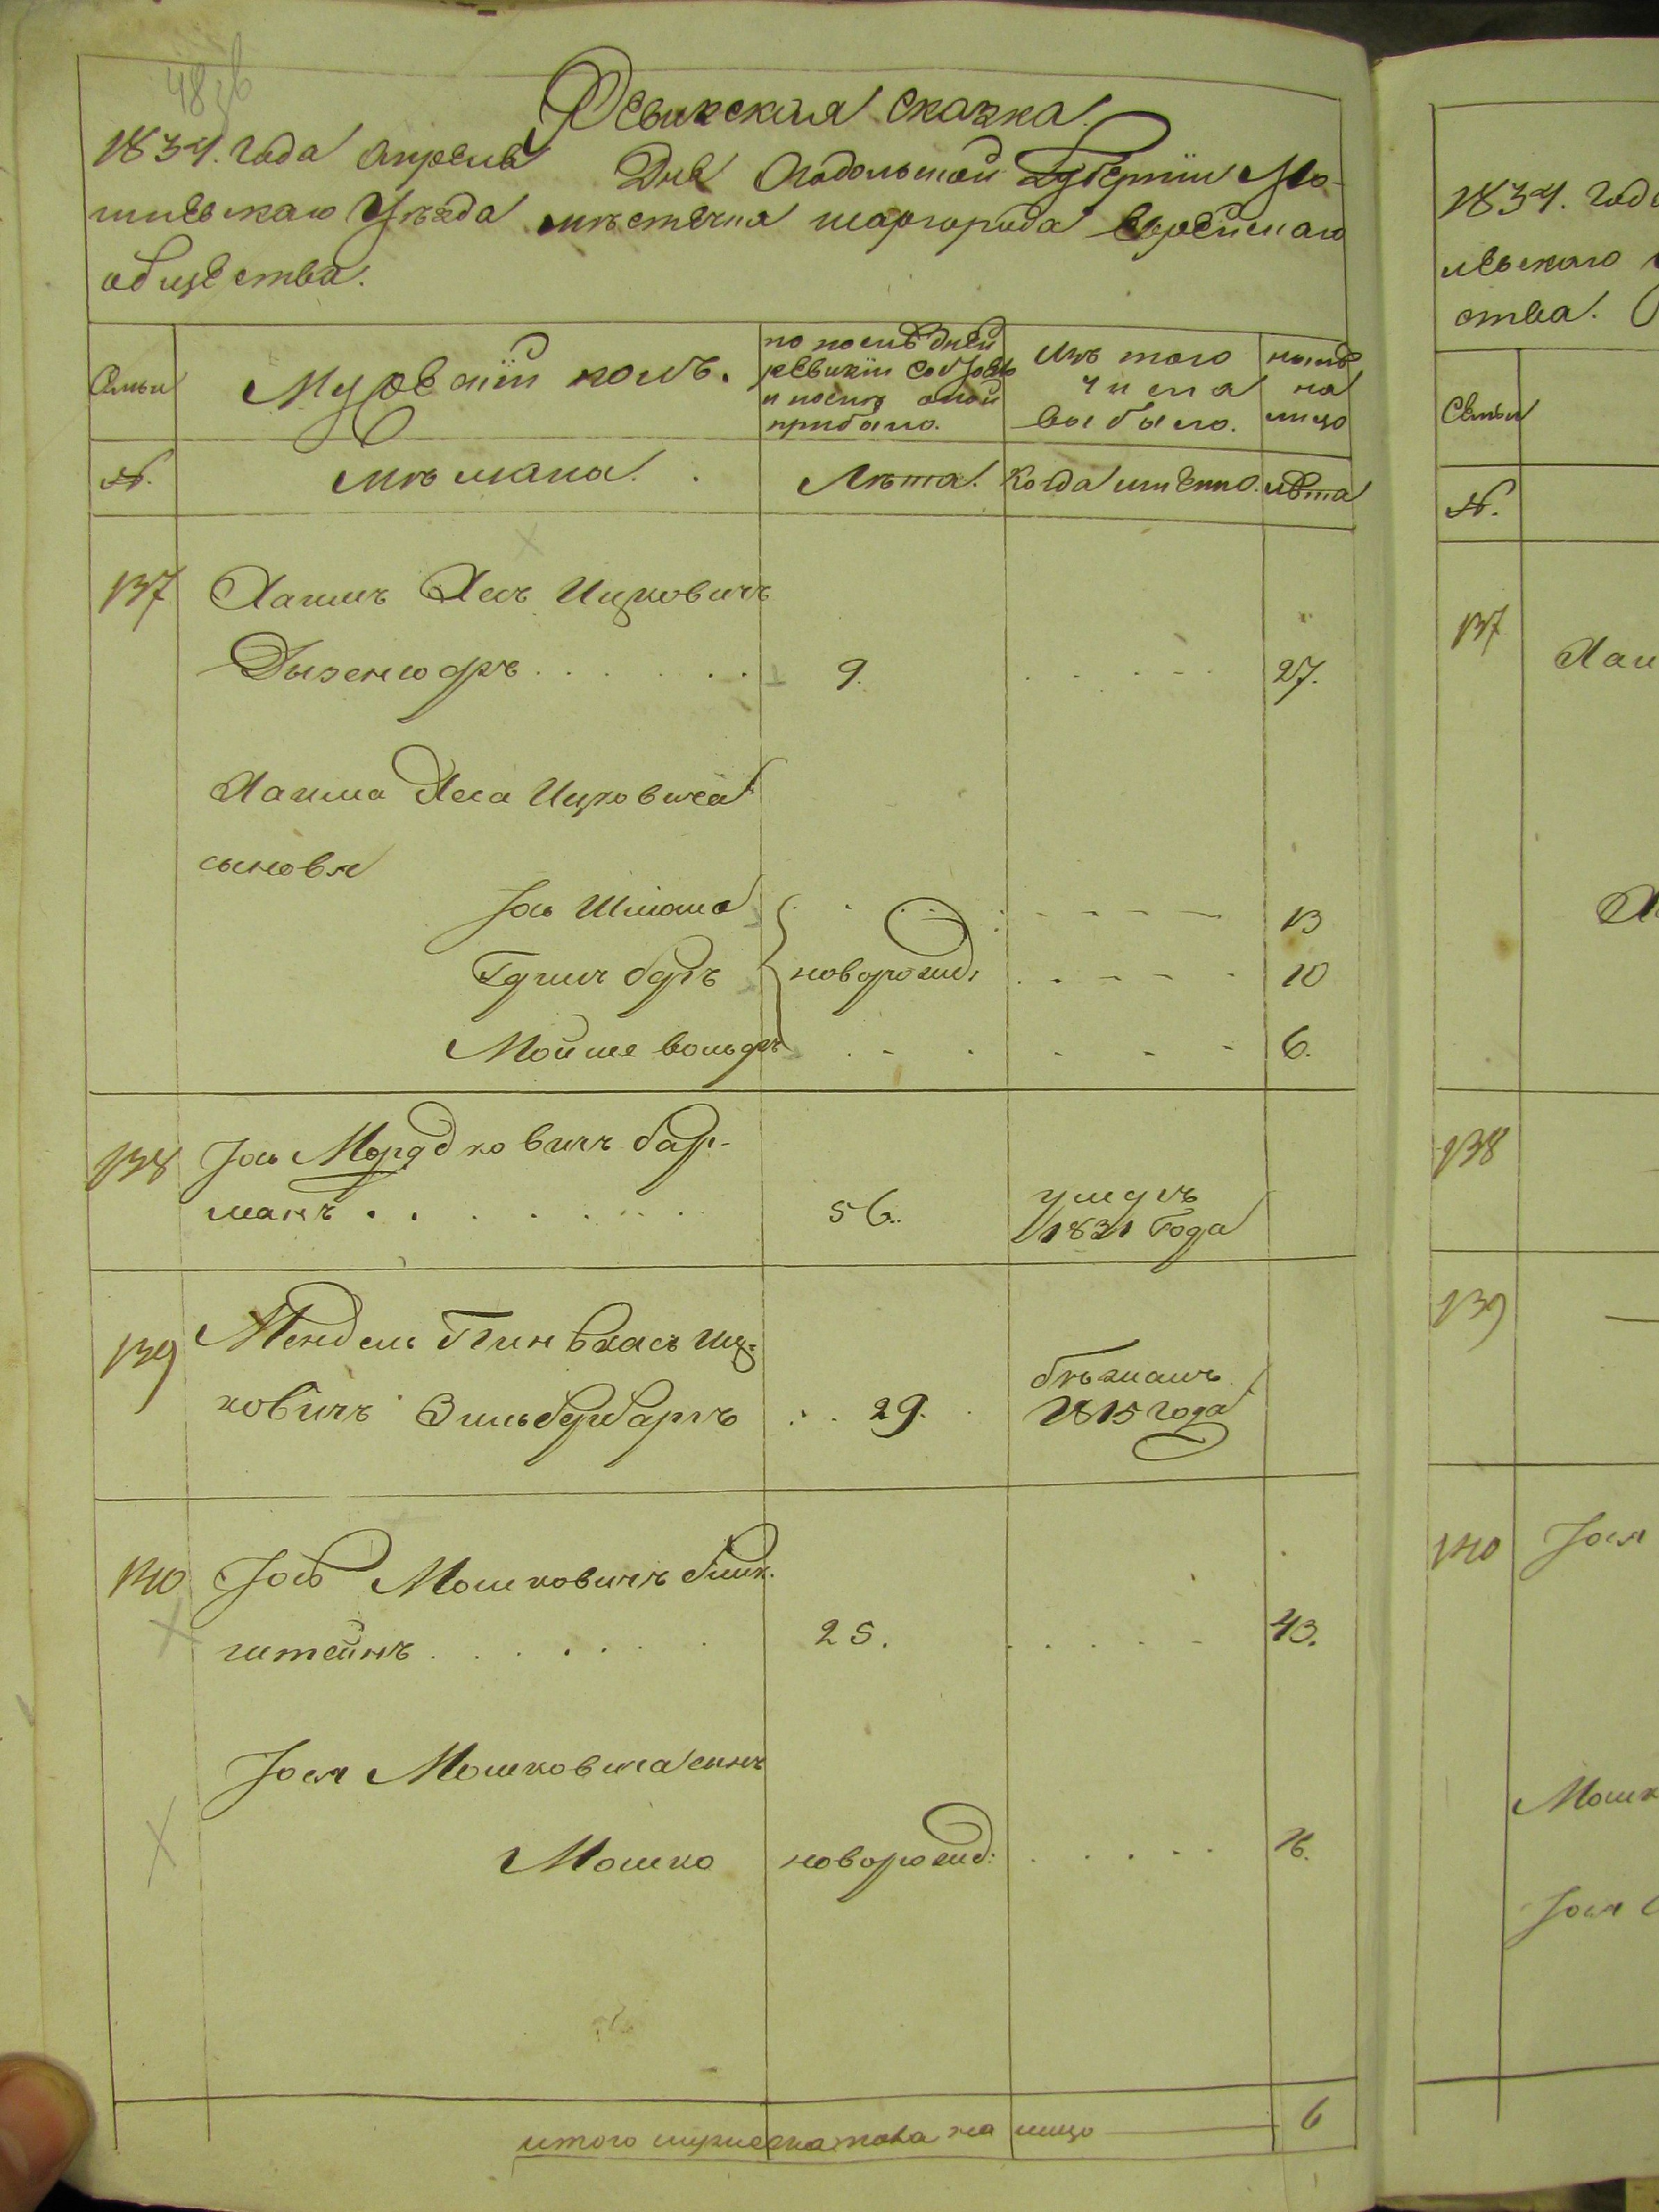 48
Ревизская сказка.
1834. года Апреля Дня Подольской Губернии Мо-
гилевскаго Уѣзда мѣстечка шаргорода Еврейскаго
общества.
Семьи
Мужескій полъ.
по послѣдней
ревизіи состояло
и послѣ оной
прибыло.
Изъ того
числа
выбыло.
нынѣ
на
лицо
№.
Лѣта.
Когда именно.
лѣта
137
Ицковичъ
9.
27.
Ицковича
сыновя
Іось Шлiома
13
новорожд:
10
Мойше Вольфъ
6.
138
Іось Мордковичъ бар-
манъ
56.
умеръ
1831 Года
139
Мендель Пинхасъ Иц-
ковичъ Зильберберъ
29.
бѣжалъ
1815 года
140
Іось Мошковичъ
штейнъ
25.
43.
Іося Мошковича сынъ
Мошко
новорожд:
16.
итого мужеска пола на лицо
6
1834. года
левскаго
ства.
Семьи
№.
137
138
139
140
Іося
Мошк
Іося